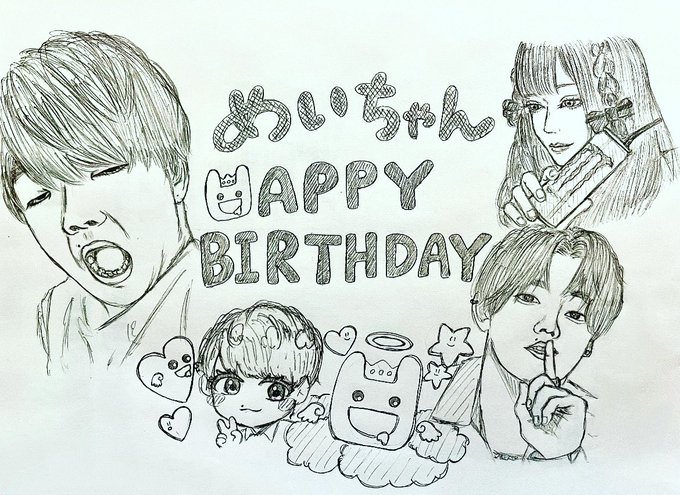 めいちゃん
HAPPY
BIRTHDAY